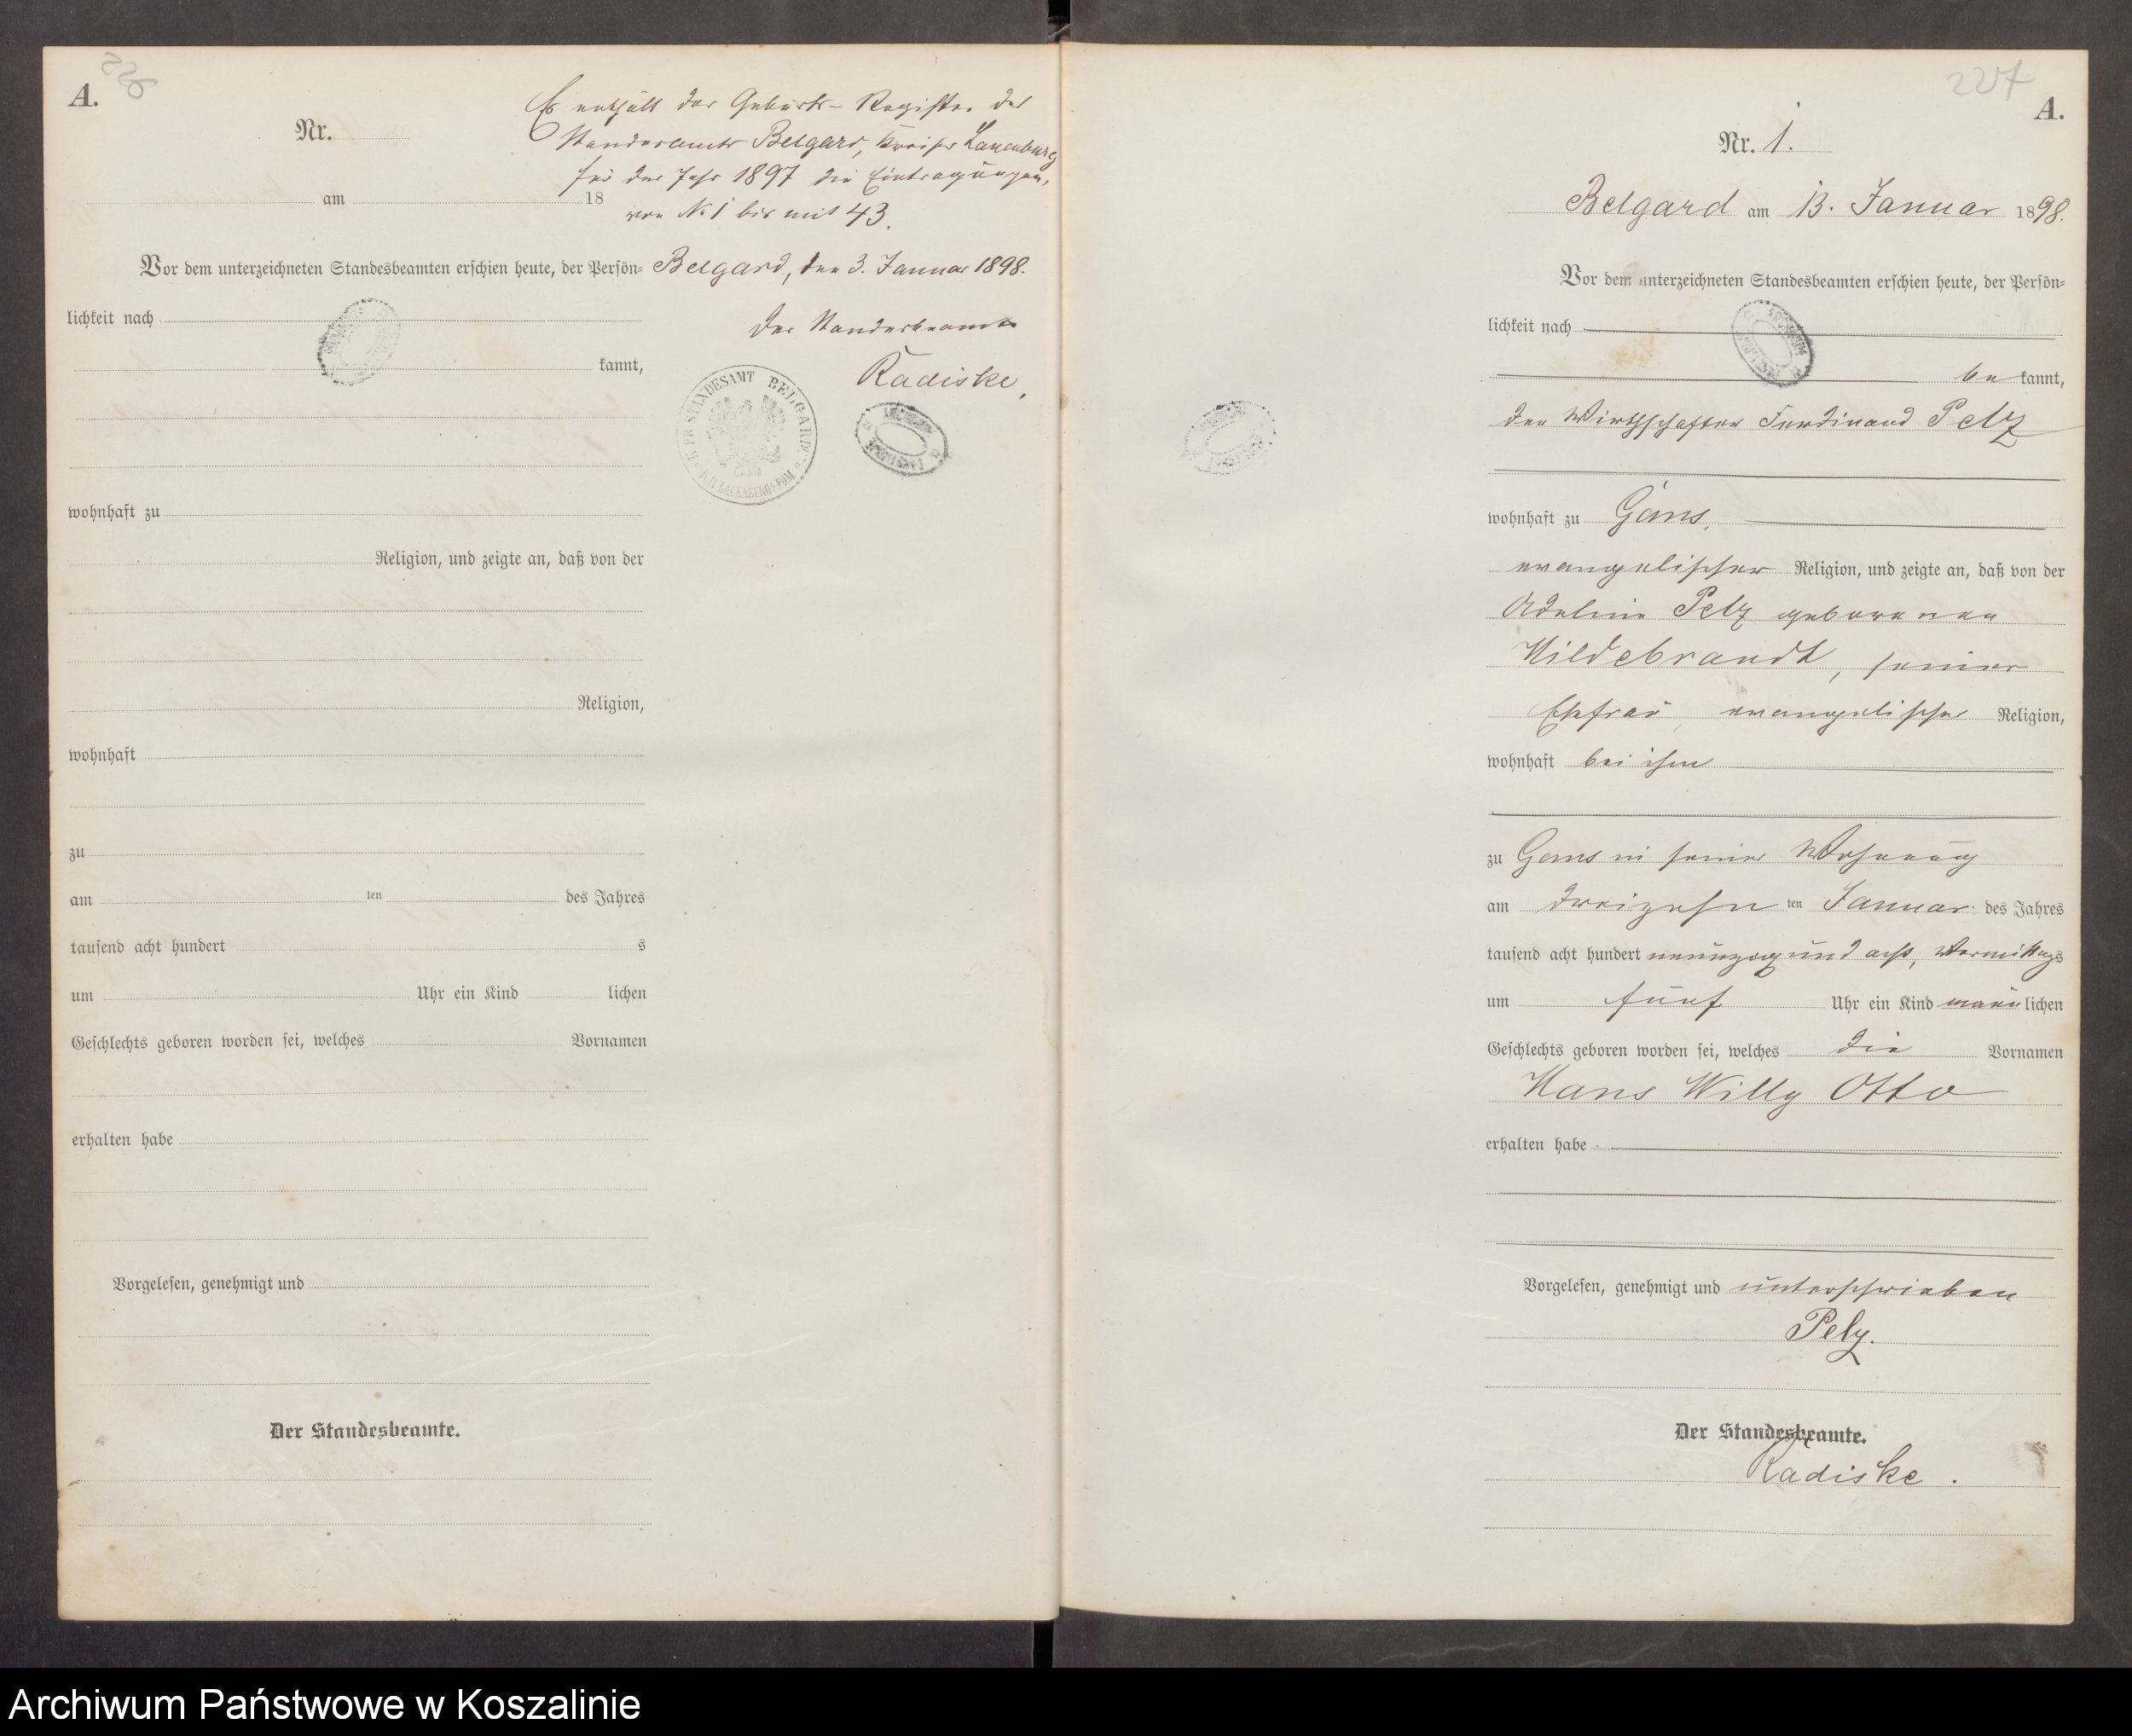 A.
Nr.
Es enthält das Geburts-Register des
Standesamts Belgard, Kreises Lauenburg
für das Jahr 1897 die Eintragungen,
am 18
von No 1 bis mit 43.
Vor dem unterzeichneten Standesbeamten erschien heute, der Persön=
Belgard, den 3. Januar 1898.
lichkeit nach
Der Standesbeamte
kannt,
Radiske,
STANDESAMT BELGARD
wohnhaft zu
Religion, und zeigte an, daß von der
Religion,
wohnhaft
zu
am ten des Jahres
tausend acht hundert s
um Uhr ein Kind lichen
Geschlechts geboren worden sei, welches Vornamen
erhalten habe
Vorgelesen, genehmigt und
Der Standesbeamte.
227
A.
Nr. 1.
Belgard am 13. Januar 1898.
Vor dem unterzeichneten Standesbeamten erschien heute, der Persön=
lichkeit nach
be kannt,
der Wirthschafter Ferdinand Pelz
wohnhaft zu Gans,
evangelischer Religion, und zeigte an, daß von der
Adeline Pelz geborenen
Hildebrandt, seiner
Ehefrau, evangelischer Religion,
wohnhaft bei ihm
zu Gans in seiner Wohnung
am dreizehn ten Januar des Jahres
tausend acht hundert neunzig und acht, Vormittags
um fünf Uhr ein Kind männ lichen
Geschlechts geboren worden sei, welches die Vornamen
Hans Willy Otto
erhalten habe
Vorgelesen, genehmigt und unterschrieben
Pelz.
Der Standesbeamte.
Radiske.
Archiwum Państwowe w Koszalinie